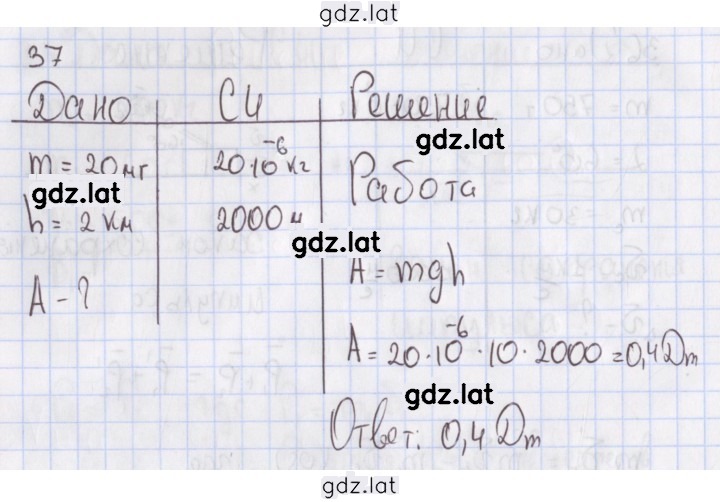 gdz.lat
37
Дано СИ Решение
gdz.lat
m = 20 мг 20·10⁻⁶ кг Работа
gdz.lat
h = 2 км 2000 м
gdz.lat
A = mgh
A - ?
A = 20·10⁻⁶·10·2000 = 0,4 Дж
gdz.lat
Ответ: 0,4 Дж
gdz.lat